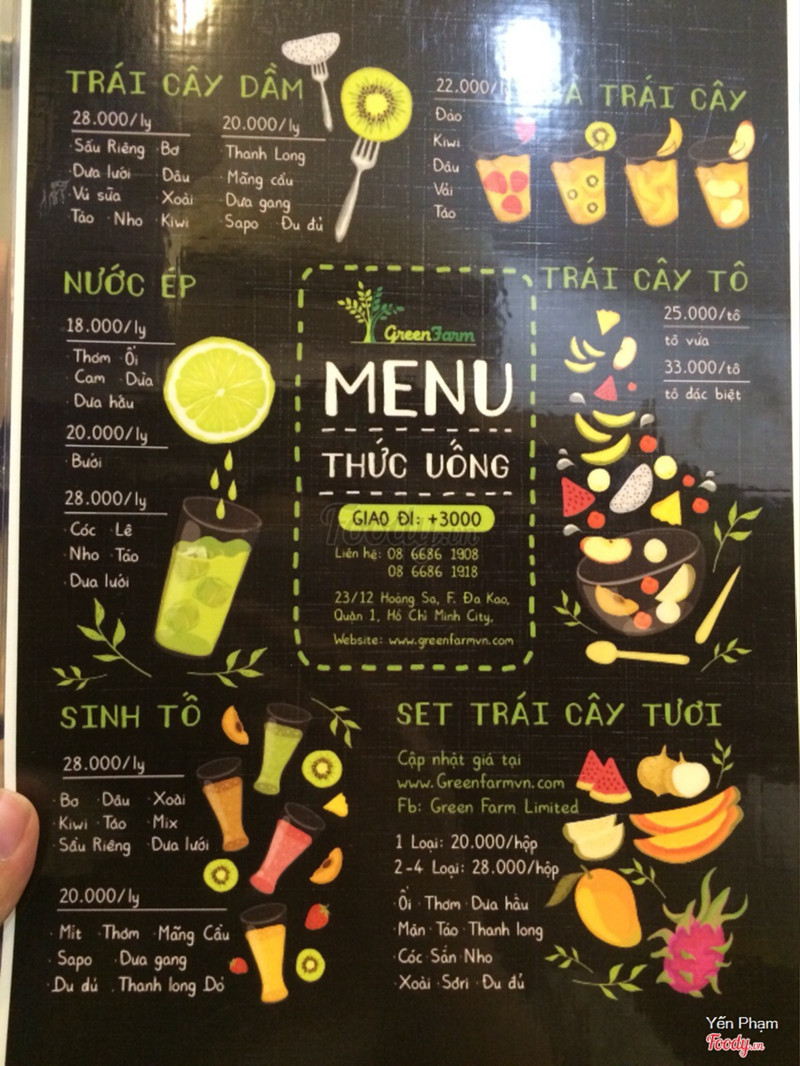 TRÁI CÂY DẦM
28.000/ly
· Sầu Riêng · Bơ
· Dưa lưới · Dâu
· Vú sữa · Xoài
· Táo · Nho · Kiwi
20.000/ly
· Thanh Long
· Mãng cầu
· Dưa gang
· Sapo · Đu đủ
22.000/
À TRÁI CÂY
Đào
Kiwi
Dâu
Vải
Táo
NƯỚC ÉP
18.000/ly
· Thơm · Ổi
· Cam · Dừa
· Dưa hấu
20.000/ly
· Bưởi
28.000/ly
· Cóc · Lê
· Nho · Táo
· Dưa lưới
GreenFarm
MENU
THỨC UỐNG
GIAO ĐI: +3000
Liên hệ: 08 6686 1908
08 6686 1918
23/12 Hoàng Sa, F. Đa Kao,
Quận 1, Hồ Chí Minh City,
Website: www.greenfarmvn.com
Foody.vn
TRÁI CÂY TÔ
25.000/tô
tô vừa
33.000/tô
tô đặc biệt
SINH TỐ
28.000/ly
· Bơ · Dâu · Xoài
· Kiwi · Táo · Mix
· Sầu Riêng · Dưa lưới
20.000/ly
· Mít · Thơm · Mãng Cầu
· Sapo · Dưa gang
· Đu đủ · Thanh long Đỏ
SET TRÁI CÂY TƯƠI
Cập nhật giá tại
www.Greenfarmvn.com
Fb: Green Farm Limited
1 Loại: 20.000/hộp
2-4 Loại: 28.000/hộp
· Ổi · Thơm · Dưa hấu
· Mận · Táo · Thanh long
· Cóc · Sắn · Nho
· Xoài · Sơri · Đu đủ
Yến Phạm
Foody.vn